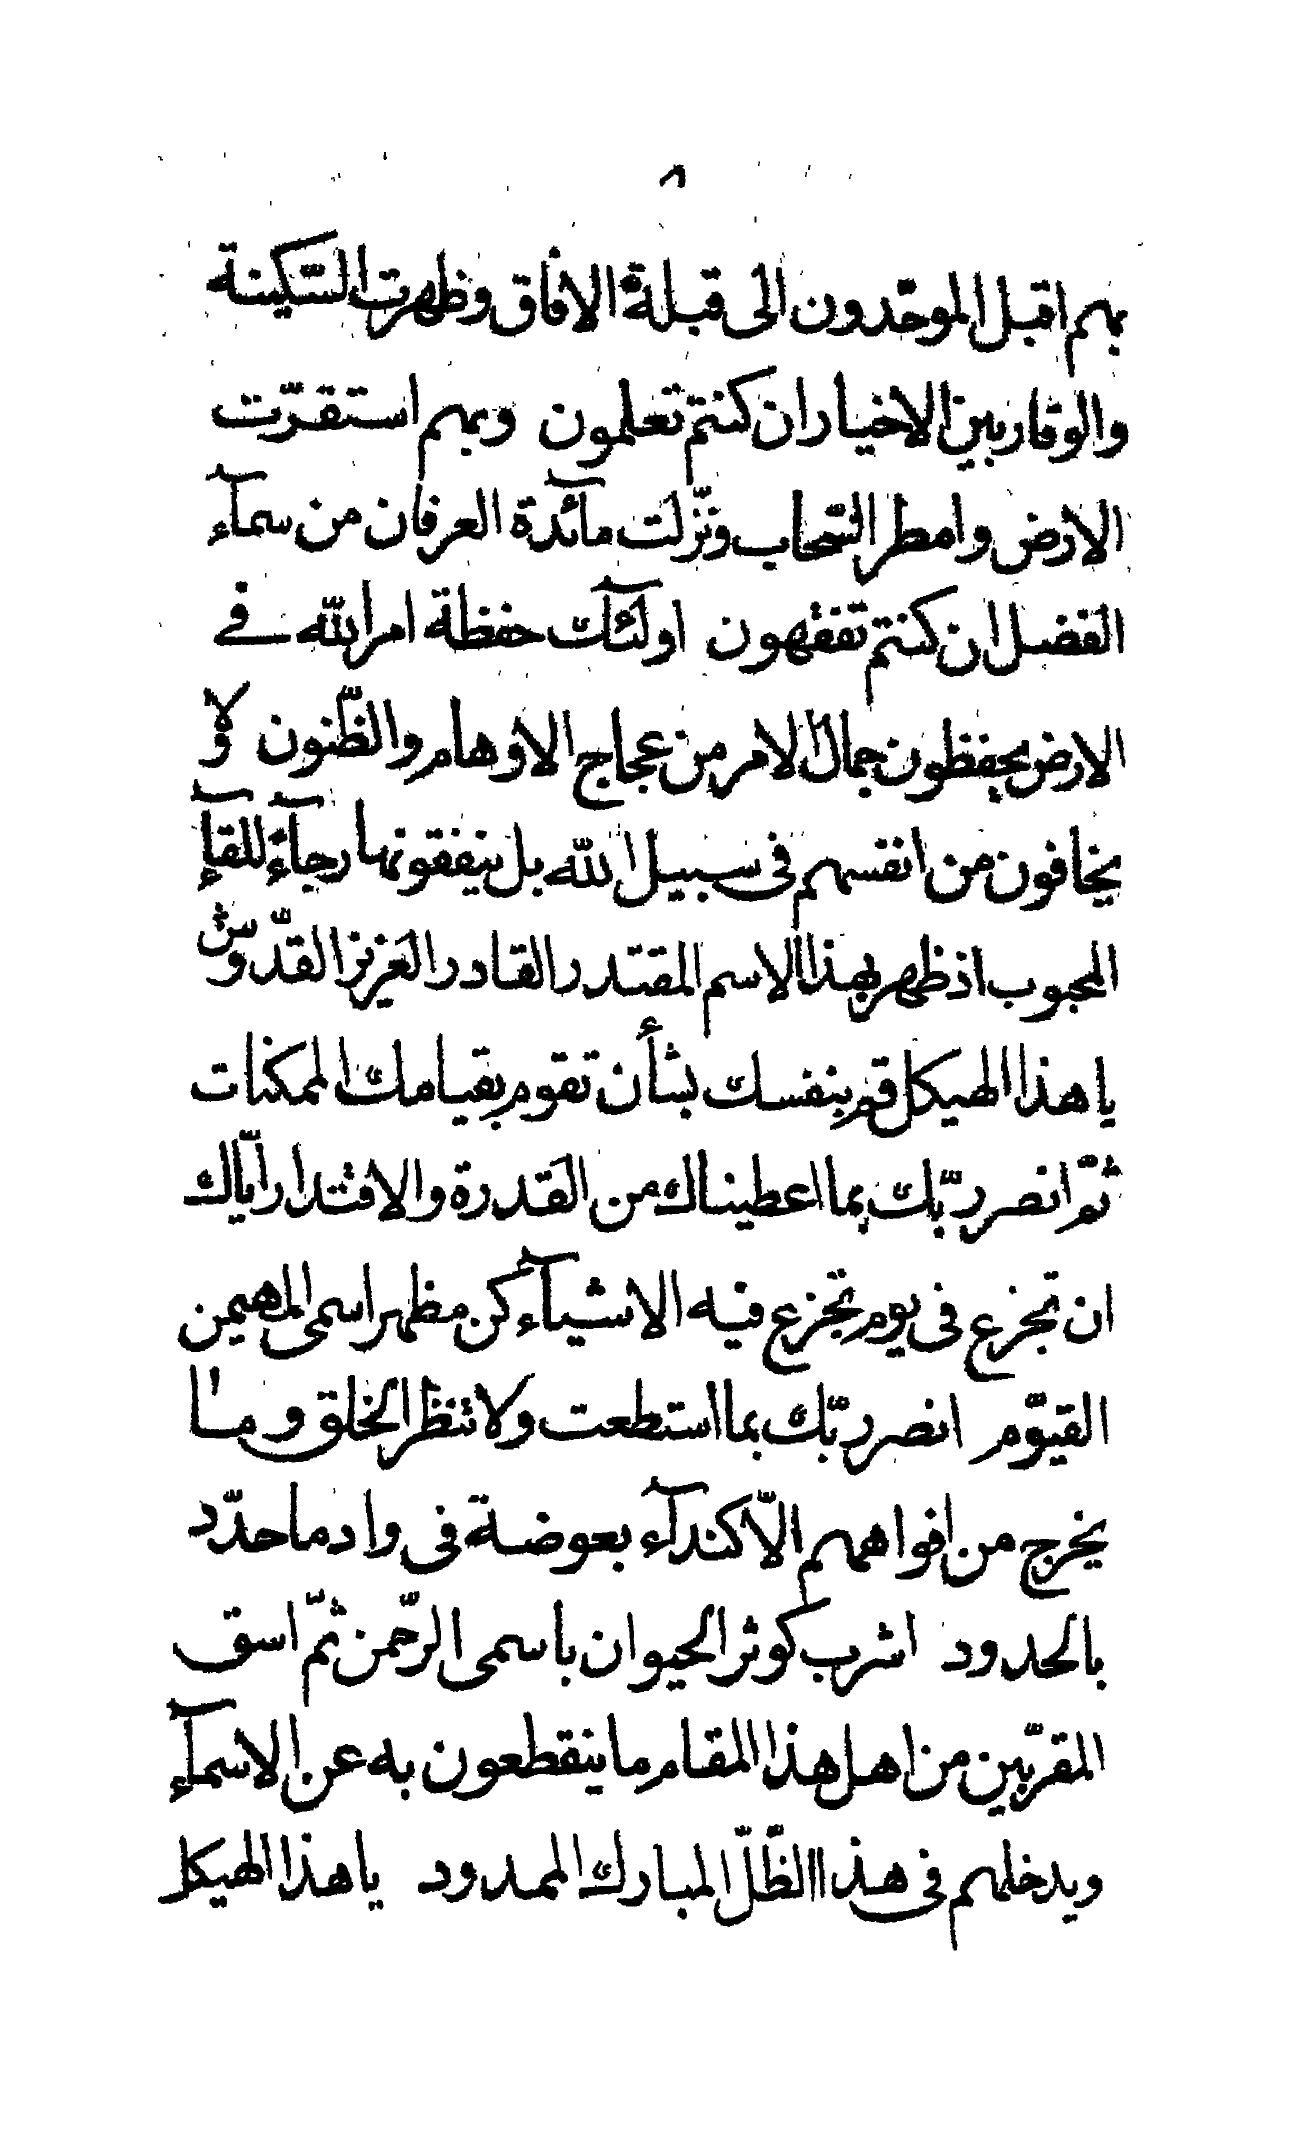 ٨
بهم اقبل الموحّدون الى قبلة الافاق وظهرت السّكينة
والوقار بين الاخيار ان كنتم تعلمون وبهم استقرّت
الارض وامطر السّحاب ونزّلت مآئدة العرفان من سمآء
الفضل ان كنتم تفقهون اولئآك حفظة امر الله فے
الارض يحفظون جمال الامر من عجاج الاوهام والظّنون ولا
يخافون من انفسهم فى سبيل الله بل ينفقونها رجآء للقآء
المحبوب اذ ظهر بهذا الاسم المقتدر القادر العزيز القدّوس
يا هذا الهيكل قم بنفسك بشأن تقوم بقيامك الممكنات
ثمّ انصر ربّك بما اعطيناك من القدرة والاقتدار ايّاك
ان تجزع فى يوم تجزع فيه الاشيآء كن مظهر اسمى المهيمن
القيّوم انصر ربّك بما استطعت ولا تنظر الخلق وما
يخرج من افواههم الّا كندآء بعوضة فى واد ما حدّد
بالحدود اشرب كوثر الحيوان باسمى الرّحمن ثمّ اسق
المقرّبين من اهل هذا المقام ما ينقطعون به عن الاسمآء
ويدخلهم فى هذا الظّلّ المبارك الممدود يا هذا الهيكل